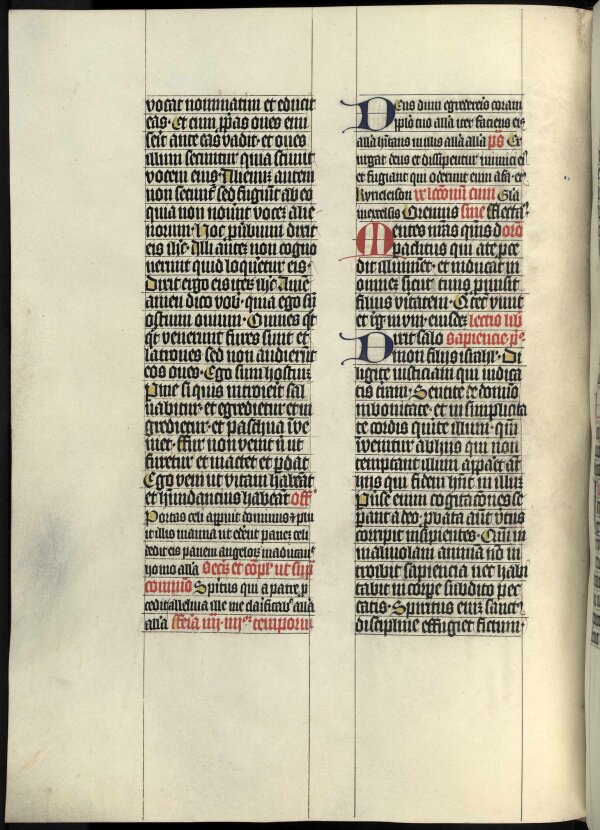 vocat nominatim et educit
eas · Et cum ꝓpas oues emi
serit ante eas vadit · et oues
illum secuntur quia sciunt
vocem eius · Alienū autem
non secunt sed fugiunt ab eo
quia non nouunt vocē alie
norum · Hoc ꝓubium dixit
eis ihc · Illi autē non cogno
uerunt quid loquetur eis ·
Dixit ergo eis itez ihc · Amē
amen dico vob · quia ego sū
ostium ouium · Omnes qt
qt venerunt fures sunt et
latrones sed non audierūt
eos oues · Ego sum hostiū
Per me si quis introierit sal
uabitur · et egredietur et in
gredietur · et pascua īue
niet · Fur non venit n̄ ut
furetur et mactet et ꝑdat
Ego veni ut vitam habeāt
et habundancius habeāt off
Portas celi aperuit dominus ⁊ plu
it illis manna ut ederēt panez celi
dedit eis panem angeloꝝ māducauit
homo alla Secr et cōpl ut sup
comunio Spiritus qui a patre ꝓ
cedit alleluia ille me clarificabit alla
alla Feria iiii iiiior temporū
Deus dum egredereris coram
pplo tuo alla iter faciens eis
alla hītans in illis alla alla ps Ex
urgat deus et dissipentur inimici ei
et fugiant qui oderunt eum a fa · ei
Kyrieleison
Gla
in excelsis Oremus sine
Mentes nrās q̄s d oro
paclitus qui a te ꝓce
dit illuminet · et inducat in
omnez sicut tuus ꝓmisit
filius vitatem · Q tec viuit
et
lectio lib
Dixit salo sapiencie pe
mon filijs isrl · Di
ligite iusticiam qui iudica
tis t̄ram · Sentite de domīo
in bonitate · et in simplicita
te cordis q̄rite illum · qm
inuenitur ab hijs qui non
temptant illum apparet aut
hijs qui fidem hn̄t in illū
Puerse enim cogitacōnes se
parant a deo · ꝓbata aūt v̄tus
corripit insipientes · Qm̄ in
maliuolam animā nō in
troibit sapiencia nec habi
tabit in corꝑe subdito pec
catis · Spiritus enim sanct
discipline effugiet fictum ·